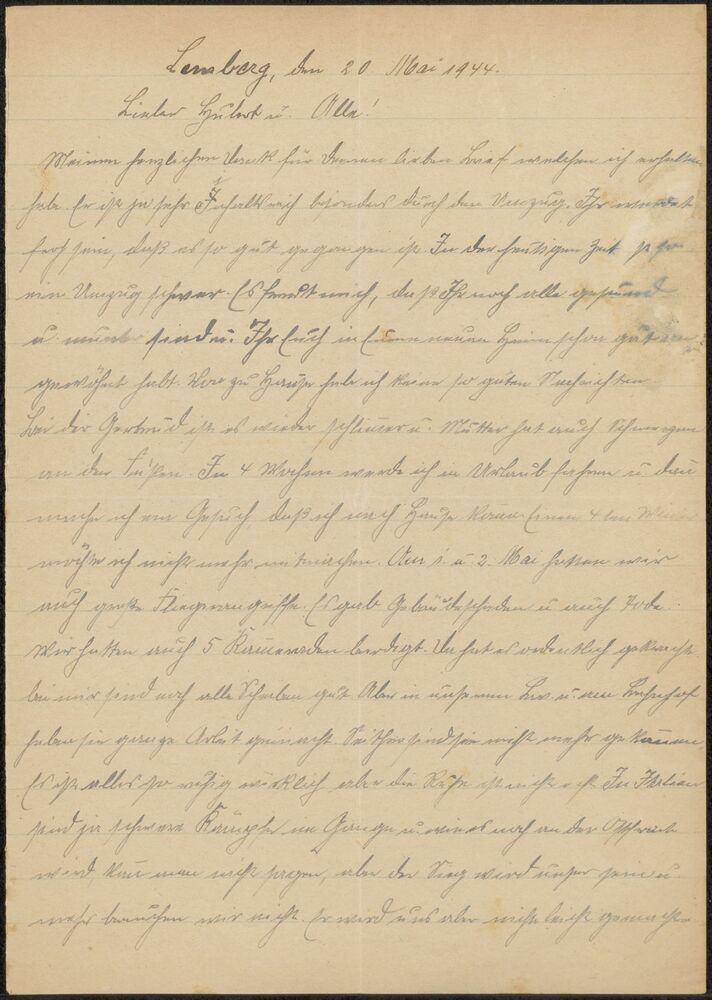 Lemberg, den 20. Mai 1944.
Lieber Hubert u. Alle!
Meinen herzlichen Dank für Deinen lieben Brief welchen ich erhalten
habe. Er ist ja sehr Inhaltsreich besonders durch den Umzug. Ihr werdet
froh sein, daß es so gut gegangen ist. In der heutigen Zeit ist so
ein Umzug schwer. Es freut mich, daß Ihr noch alle gesund
u. munter seid u. Ihr Euch in Eurem neuen Heim schon gut ein-
gewöhnt habt. Von zu Hause habe ich keine so guten Nachrichten.
Bei der Gertrud ist es wieder schlimmer u. Mutter hat auch Schmerzen
an den Füßen. In 4 Wochen werde ich in Urlaub fahren u. dann
mache ich ein Gesuch, daß ich nach Hause kann. Einen 4ten Winter
möchte ich nicht mehr mitmachen. Am 1. u. 2. Mai hatten wir
auch große Fliegerangriffe. Es gab Gebäudeschaden u. auch Tode.
Wir hatten auch 5 Kameraden beerdigt. Da hat es ordentlich gekracht
bei mir sind noch alle Scheiben gut. Aber in unserem u. am Bahnhof
haben sie ganze Arbeit gemacht. Seither sind sie nicht mehr gekommen.
Es ist alles so ruhig wirklich, aber die Ruhe ist nicht In Italien
sind ja schwere Kämpfe im Gange u. wie es noch an der Ostfront
wird, kann man nicht sagen, aber der Sieg wird unser sein u.
mehr brauchen wir nicht. Er wird uns aber nicht leicht gemacht.